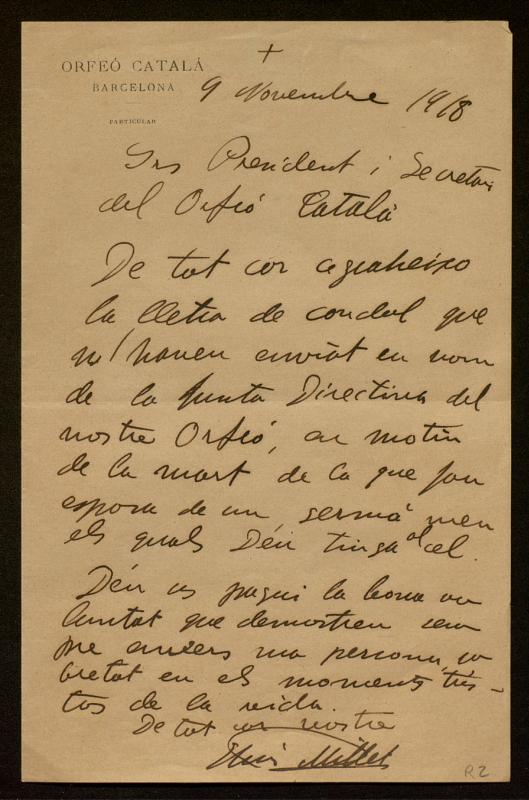 +
ORFEÓ CATALÁ
BARCELONA
PARTICULAR
9 Novembre 1918
Srs President i Secretari
del Orfeó Català
De tot cor agraheixo
la lletra de condol que
m'haven enviat en nom
de la Junta Directiva del
nostre Orfeó, en motiu
de la mort de la que fou
esposa de un germà meu
els quals Déu tinga al cel.
Déu us pagui la bona vo
luntat que demostren sem
pre envers ma persona, so
bretot en els moments tris-
tos de la vida.
De tot cor vostre
Lluis Millet
R2